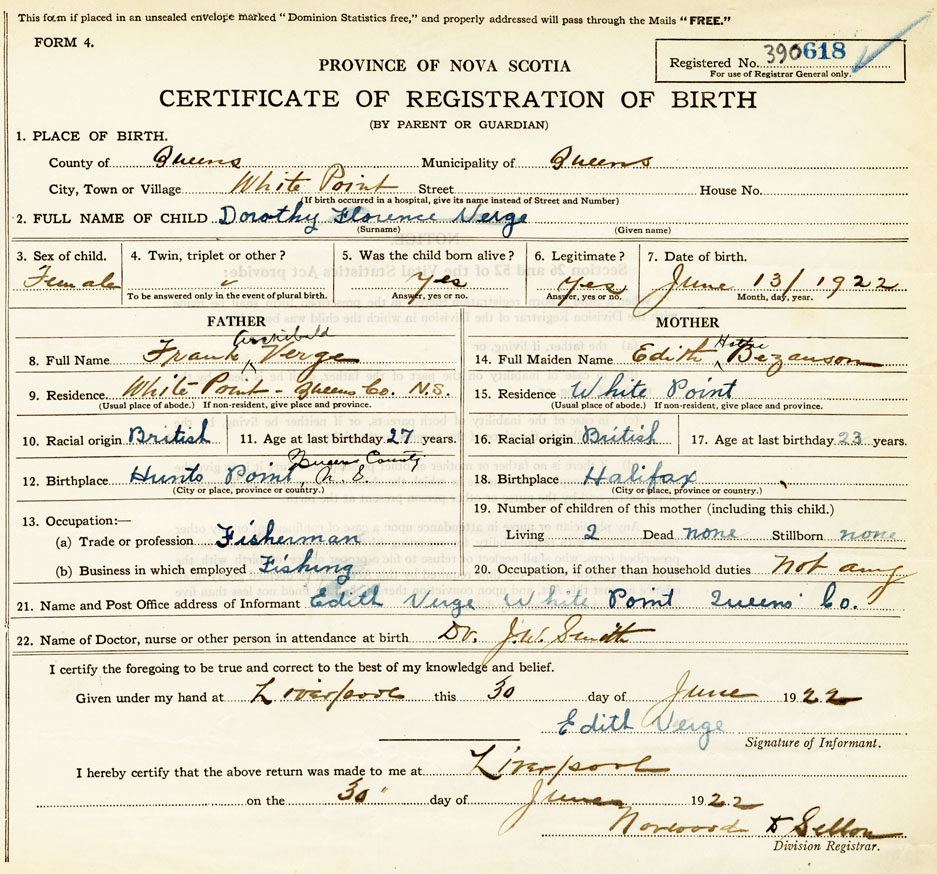 This form if placed in an unsealed envelope marked "Dominion Statistics free," and properly addressed will pass through the Mails "FREE."
FORM 4.
Registered No. 390618
For use of Registrar General only.
PROVINCE OF NOVA SCOTIA
CERTIFICATE OF REGISTRATION OF BIRTH
(BY PARENT OR GUARDIAN)
1. PLACE OF BIRTH.
County of Queens Municipality of Queens
City, Town or Village White Point Street House No.
(If birth occurred in a hospital, give its name instead of Street and Number)
2. FULL NAME OF CHILD Dorothy Florence Verge
(Surname) (Given name)
3. Sex of child. 4. Twin, triplet or other? 5. Was the child born alive? 6. Legitimate? 7. Date of birth.
Female Yes Yes June 13/1922
To be answered only in the event of plural birth. Answer, yes or no. Answer, yes or no. Month, day, year.
FATHER MOTHER
8. Full Name Frank Archibald Verge 14. Full Maiden Name Edith Hattie Bezanson
9. Residence White Point - Queens Co. N.S. 15. Residence White Point
(Usual place of abode.) If non-resident, give place and province. (Usual place of abode.) If non-resident, give place and province.
10. Racial origin British 11. Age at last birthday 27 years. 16. Racial origin British 17. Age at last birthday 23 years.
12. Birthplace Hunts Point, Queens County N.S. 18. Birthplace Halifax
(City or place, province or country.) (City or place, province or country.)
13. Occupation:— 19. Number of children of this mother (including this child.)
(a) Trade or profession Fisherman Living 2 Dead none Stillborn none
(b) Business in which employed Fishing 20. Occupation, if other than household duties Not any
21. Name and Post Office address of Informant Edith Verge White Point Queens Co.
22. Name of Doctor, nurse or other person in attendance at birth Dr. J.W. Smith
I certify the foregoing to be true and correct to the best of my knowledge and belief.
Given under my hand at Liverpool this 30 day of June 1922
Edith Verge
Signature of Informant.
I hereby certify that the above return was made to me at Liverpool
on the 30" day of June 1922
Norwood
Division Registrar.